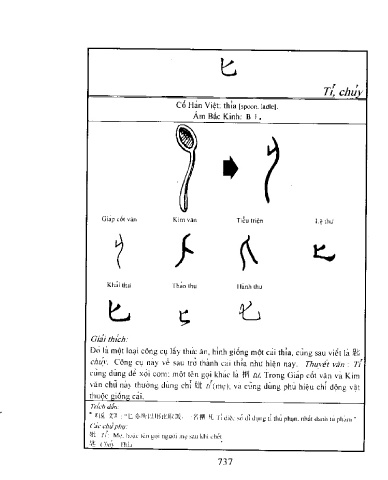 匕
Tỉ, chủy
Cổ Hán Việt: thìa [spoon, ladle].
Âm Bắc Kinh: B ǐ.
Giáp cốt văn Kim văn Tiểu triện Lệ thư
匕
Khải thư Thảo thư Hành thư
匕 匕 匕
Giải thích:
Đó là một loại công cụ lấy thức ăn, hình giống một cái thìa, cũng sau viết là 匙
chủy. Công cụ này về sau trở thành cái thìa như hiện nay. Thuyết văn: Tỉ
cũng dùng để xới cơm: một tên gọi khác là 柶 tứ. Trong Giáp cốt văn và Kim
văn chữ này thường dùng chỉ 妣 tỉ (mẹ), và cũng dùng phù hiệu chỉ động vật
thuộc giống cái.
Trích dẫn:
Các chữ phụ:
妣 Tỉ: Mẹ, hoặc tên gọi người mẹ sau khi chết.
匙 Thìa
737